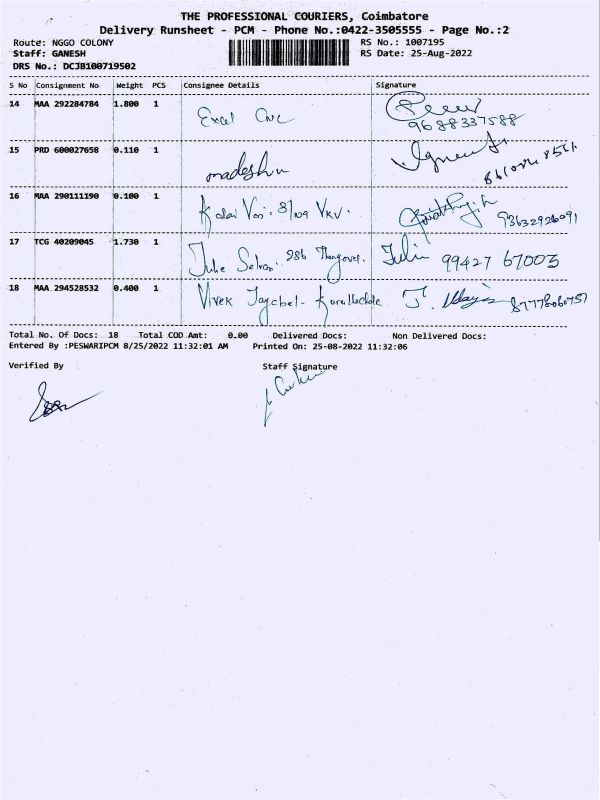 THE PROFESSIONAL COURIERS, Coimbatore
Delivery Runsheet - PCM - Phone No.:0422-3505555 - Page No.:2
Route: NGGO COLONY RS No.: 1007195
Staff: GANESH RS Date: 25-Aug-2022
DRS No.: DCJB100719502
S No Consignment No Weight PCS Consignee Details Signature
14 MAA 292284784 1.800 1 Excel
9688337588
15 PRD 600027658 0.110 1 madeshw
16 MAA 290111190 0.100 1 Kalai
17 TCG 40209045 1.730 1 Julie Selvan 286 Juli 99427 67003
18 MAA 294528532 0.400 1 Vivek
Total No. Of Docs: 18 Total COD Amt: 0.00 Delivered Docs: Non Delivered Docs:
Entered By :PESWARIPCM 8/25/2022 11:32:01 AM Printed On: 25-08-2022 11:32:06
Verified By : Staff Signature